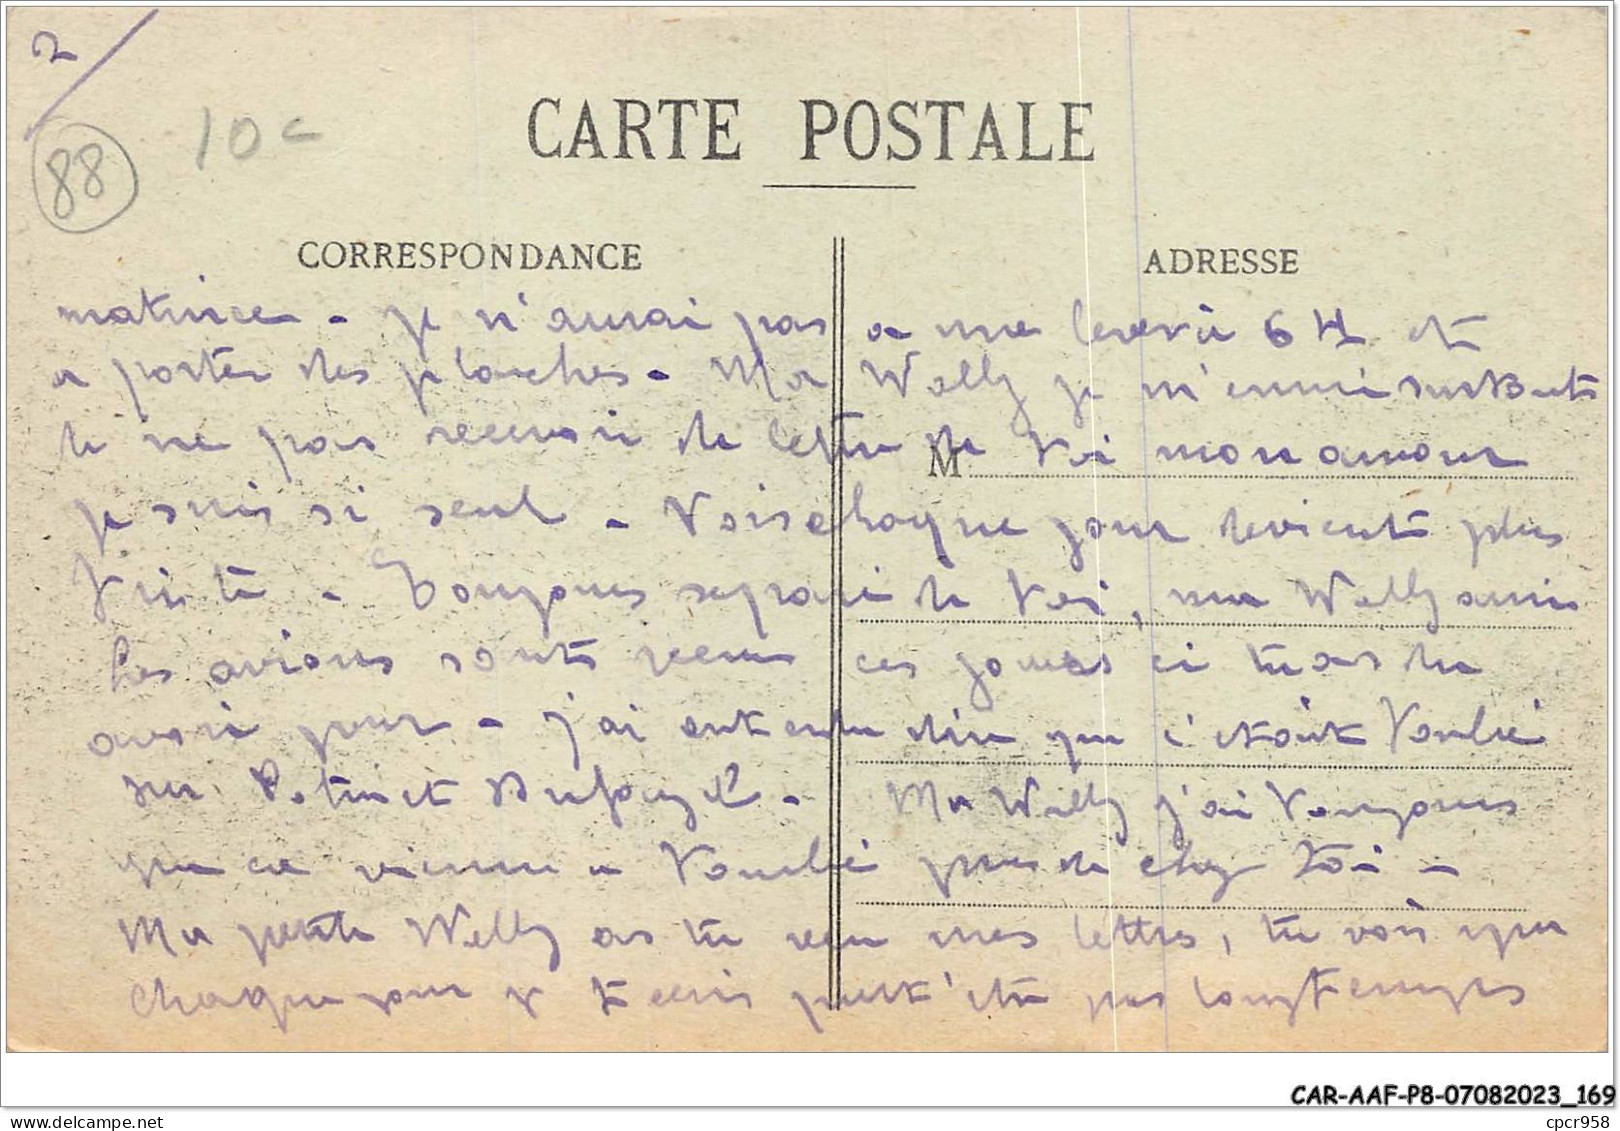 2/
88
10c
CARTE POSTALE
CORRESPONDANCE
ADRESSE
matinée - je n'aurai pas a me lever à 6 H et
a porter des planches - Ma Welly je m'ennui surtout
de ne pas recevoir de lettre de toi mon amour
M
je suis si seul - Vois chaque jour devient plus
triste - Toujours separé de toi, ma Welly aussi
les avions sont venu ces jours ci tu as du
avoir peur - j'ai entendu dire que c'etait tombé
sur et - Ma Welly j'ai toujours
que ce vienne a tombé pres de chez toi -
Ma petite Welly as tu reçu mes lettres, tu vois que
chaque jour je t'ecris peut'etre pas longtemps
CAR-AAF-P8-07082023_169
www.delcampe.net
cpcr958